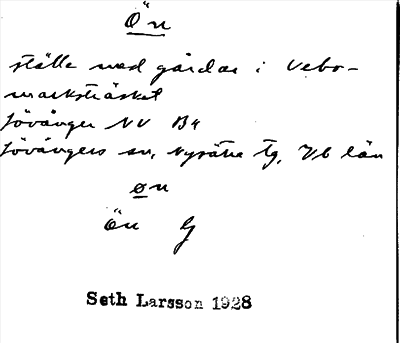 Ön
ställe med gårdar i Vebo-
marksträsket
Lövånger NV B4
Lövångers sn, Nysätra tg, Vb län
øn
Ön G
Seth Larsson 1928